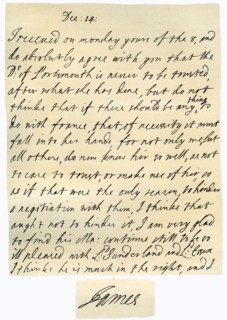 Dec: 14.
I receued on monday yours of the 8, and
do absolutly agree with you that the
Ds. of Portsmouth is never to be trusted
after what she has done, but do not
thinke that if there should be any thing to
do with france, that, of necessity it must
fall into her hands, for not only we, but
all others, do now know her so well, as not
to care to trust or make use of her, so
as if that were the only reason, to hinder
a negotiation with them, I thinke that
ought not to hinder it, I am very glad
to find his Ma: continues still to be so
ill pleased with Ld. Sunderland and Ld.
I thinke he is much in the right, and I
James